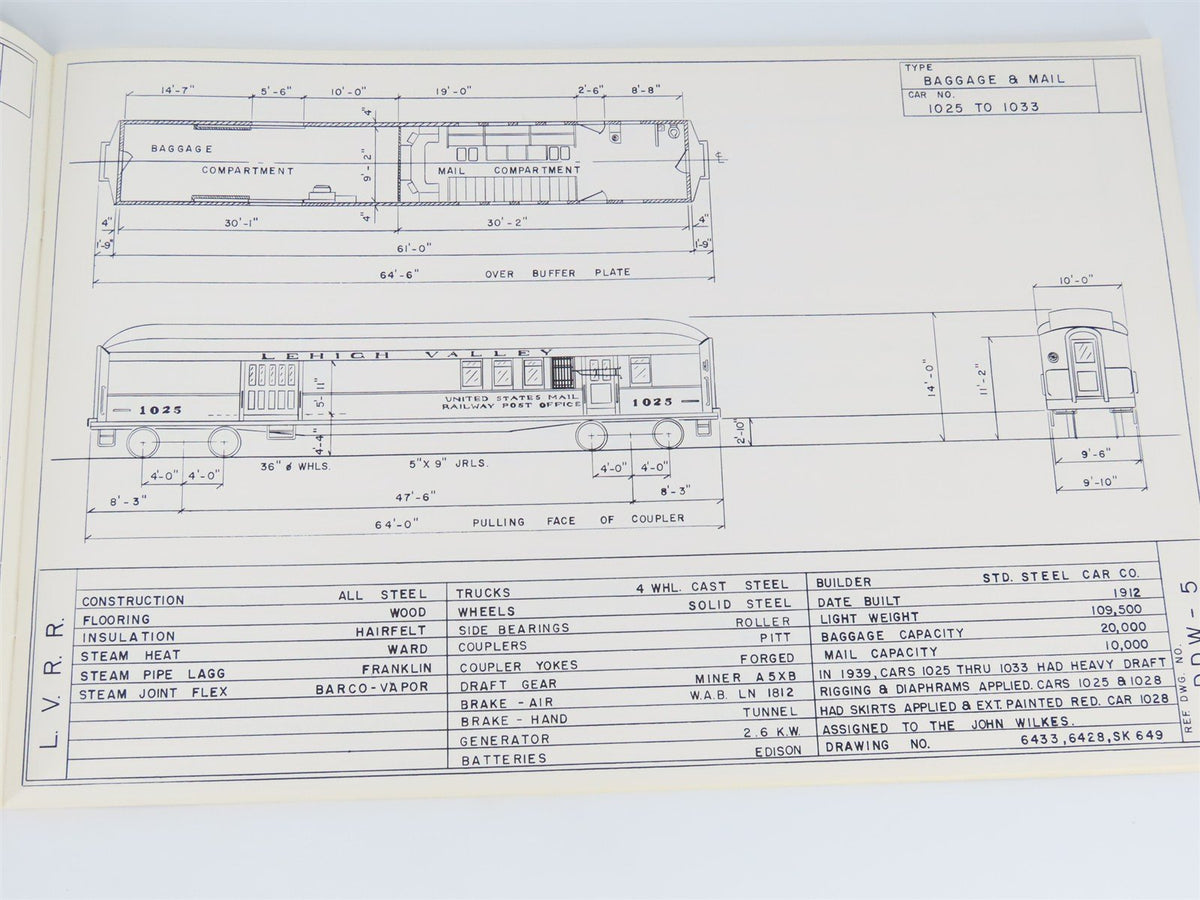 TYPE
BAGGAGE & MAIL
CAR NO.
1025 TO 1033
14'-7" 5'-6" 10'-0" 19'-0" 2'-6" 8'-8"
4"
BAGGAGE
COMPARTMENT
9'-2"
MAIL COMPARTMENT
4"
4" 30'-1" 30'-2" 4"
1'-9" 61'-0" 1'-9"
64'-6" OVER BUFFER PLATE
10'-0"
LEHIGH VALLEY
5'-11"
UNITED STATES MAIL
RAILWAY POST OFFICE
1025 1025
14'-0"
11'-2"
4'-4"
2'-10"
36" ø WHLS. 5" X 9" JRLS.
4'-0" 4'-0" 4'-0" 4'-0"
9'-6"
8'-3" 47'-6" 8'-3"
9'-10"
64'-0" PULLING FACE OF COUPLER
L. V. R. R.
CONSTRUCTION ALL STEEL
FLOORING WOOD
INSULATION HAIRFELT
STEAM HEAT WARD
STEAM PIPE LAGG FRANKLIN
STEAM JOINT FLEX BARCO-VAPOR
TRUCKS 4 WHL. CAST STEEL
WHEELS SOLID STEEL
SIDE BEARINGS ROLLER
COUPLERS PITT
COUPLER YOKES FORGED
DRAFT GEAR MINER A5XB
BRAKE - AIR W.A.B. LN 1812
BRAKE - HAND TUNNEL
GENERATOR 2.6 K.W.
BATTERIES EDISON
BUILDER STD. STEEL CAR CO.
DATE BUILT 1912
LIGHT WEIGHT 109,500
BAGGAGE CAPACITY 20,000
MAIL CAPACITY 10,000
IN 1939, CARS 1025 THRU 1033 HAD HEAVY DRAFT
RIGGING & DIAPHRAMS APPLIED. CARS 1025 & 1028
HAD SKIRTS APPLIED & EXT. PAINTED RED. CAR 1028
ASSIGNED TO THE JOHN WILKES.
DRAWING NO. 6433, 6428, SK 649
REF. DWG. NO.
W - 5